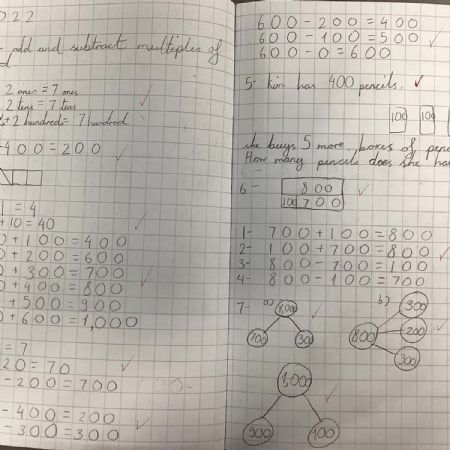 022
- add and subtract multiples of
d.
2 ones = 7 ones
2 tens = 7 tens
+ 2 hundreds = 7 hundred
-400=200
1 = 4
+10=40
0+100=400
0+200=600
0+300=700
0+400=800
+500=900
0+600=1,000
=7
20=70
-200=700
-400=200
-300=300
600-200=400
600-100=500
600-0=600
5- Kim has 400 pencils.
100 100
She buys 5 more boxes of penc
How many pencils does she ha
6- 800
100 700
1- 700+100=800
2- 100+700=800
3- 800-700=100
4- 800-100=700
7- a) 1,000 b) 300
700 300 800 200
300
1,000
900 100